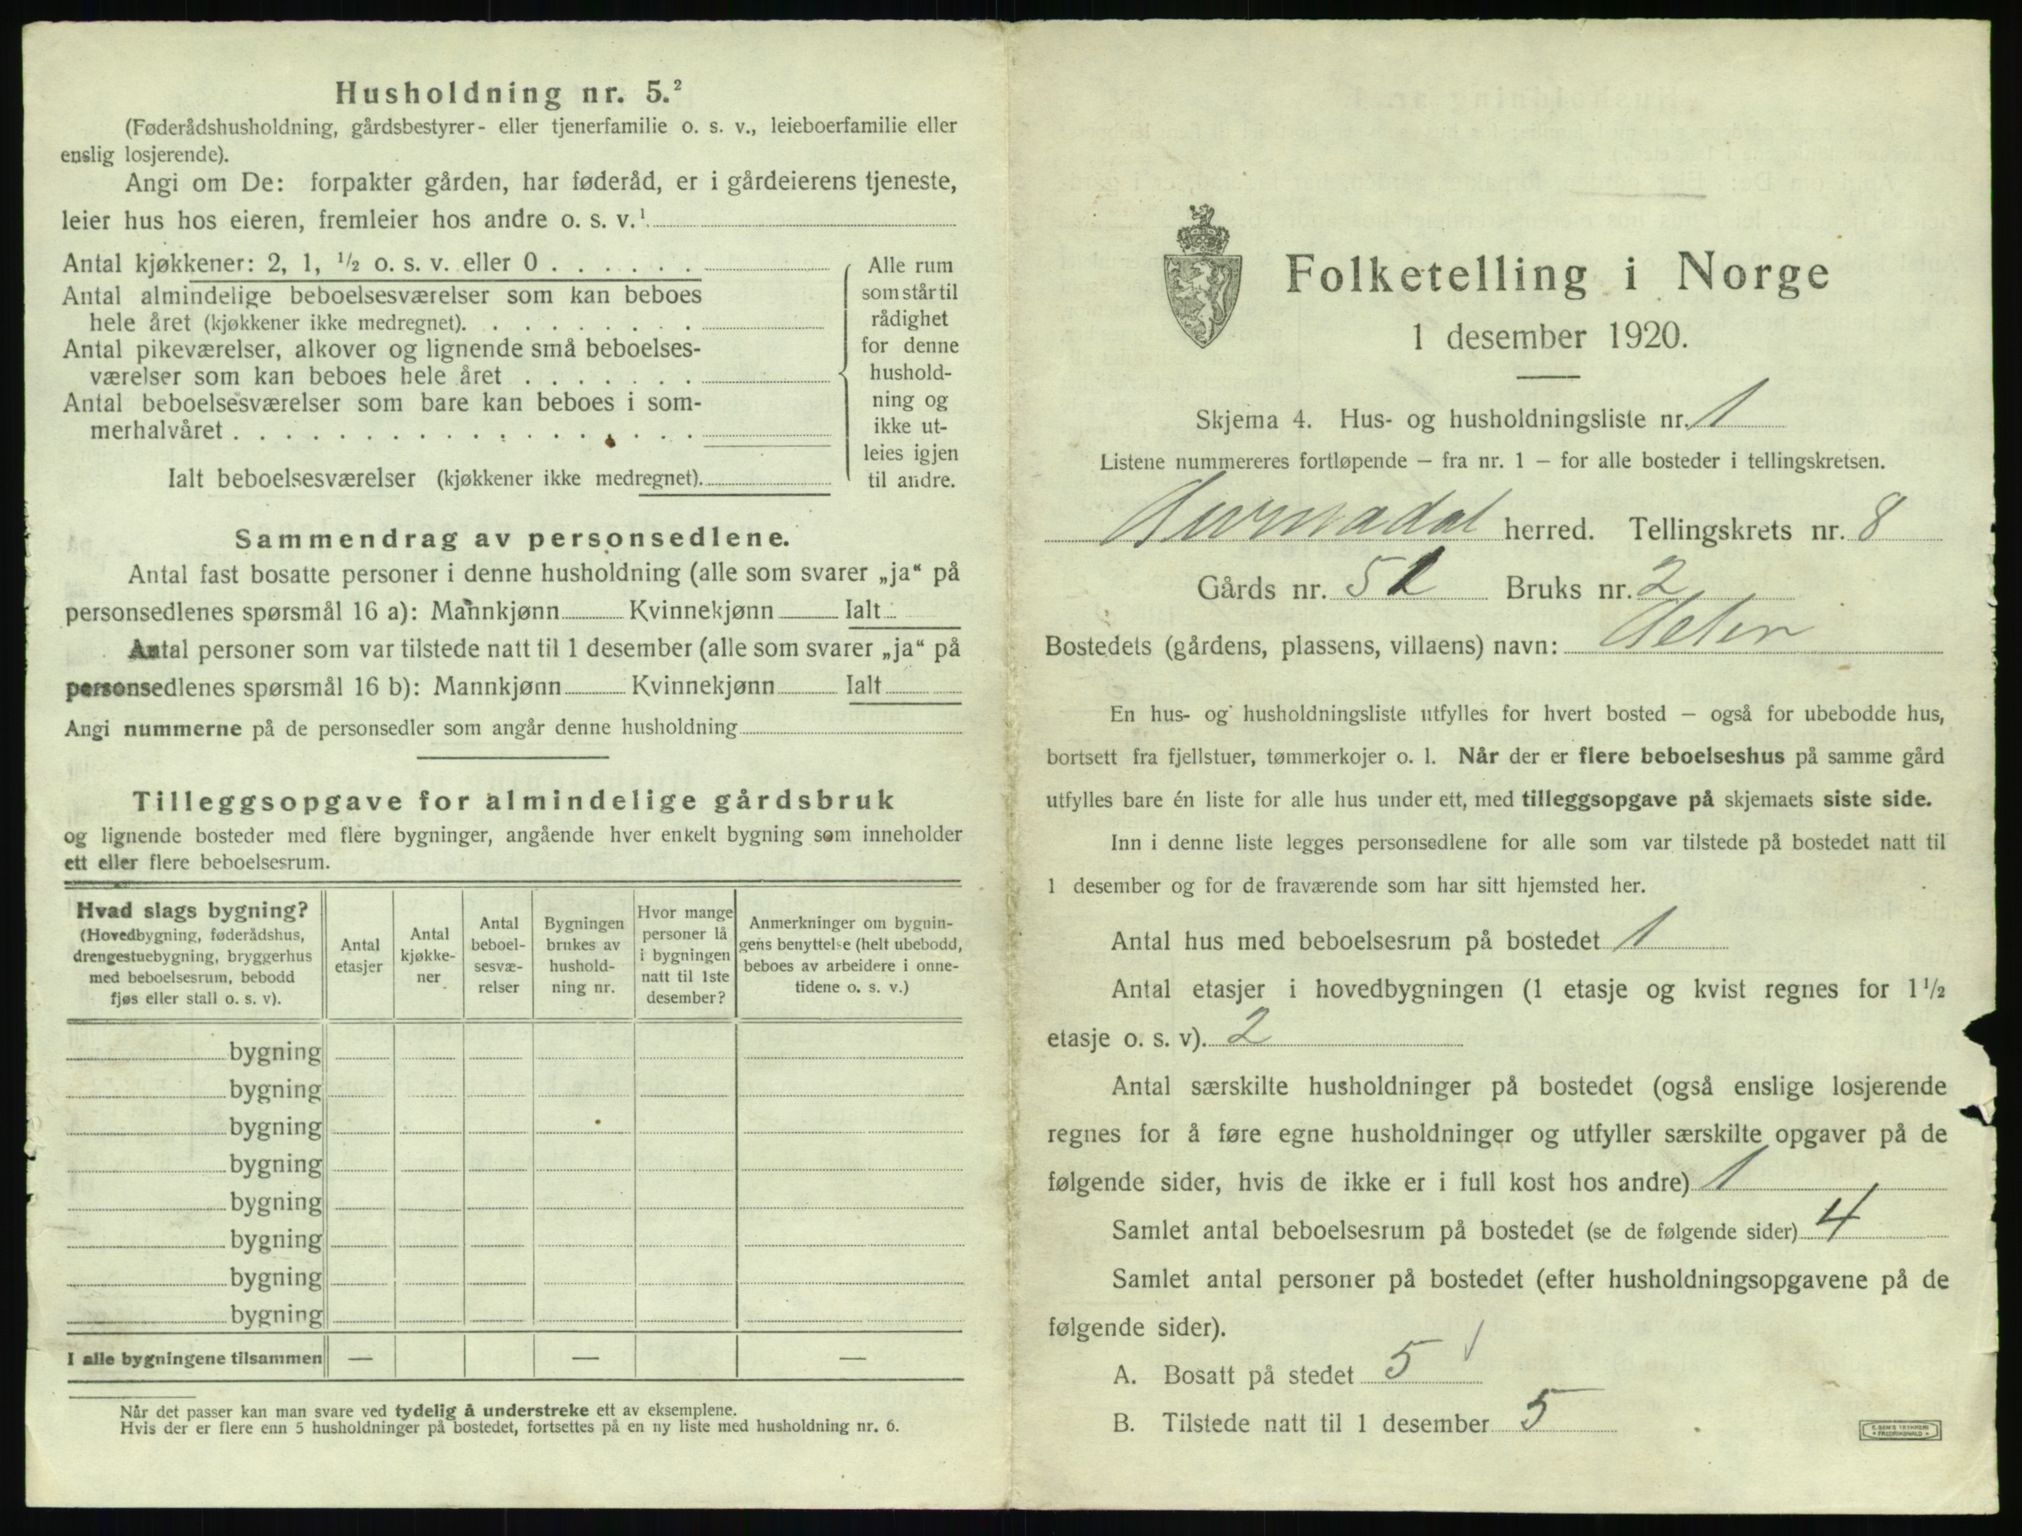 Husholdning nr. 5.²
(Føderådshusholdning, gårdsbestyrer- eller tjenerfamilie o. s. v., leieboerfamilie eller
enslig losjerende).
Angi om De: forpakter gården, har føderåd, er i gårdeierens tjeneste,
leier hus hos eieren, fremleier hos andre o. s. v.¹
Antal kjøkkener: 2, 1, ½ o. s. v. eller 0 . . . . . .
Antal almindelige beboelsesværelser som kan beboes
hele året (kjøkkener ikke medregnet). . . . . . . . .
Antal pikeværelser, alkover og lignende små beboelses-
værelser som kan beboes hele året . . . . . . .
Antal beboelsesværelser som bare kan beboes i som-
merhalvåret . . . . . . . . . . . . . . . . . .
Ialt beboelsesværelser (kjøkkener ikke medregnet).
Alle rum
som står til
rådighet
for denne
hushold-
ning og
ikke ut-
leies igjen
til andre.
Sammendrag av personsedlene.
Antal fast bosatte personer i denne husholdning (alle som svarer „ja“ på
personsedlenes spørsmål 16 a): Mannkjønn Kvinnekjønn Ialt
Antal personer som var tilstede natt til 1 desember (alle som svarer „ja“ på
personsedlenes spørsmål 16 b): Mannkjønn Kvinnekjønn Ialt
Angi nummerne på de personsedler som angår denne husholdning
Tilleggsopgave for almindelige gårdsbruk
og lignende bosteder med flere bygninger, angående hver enkelt bygning som inneholder
ett eller flere beboelsesrum.
Hvad slags bygning?
(Hovedbygning, føderådshus,
drengestuebygning, bryggerhus
med beboelsesrum, bebodd
fjøs eller stall o. s. v).
Antal
etasjer
Antal
kjøkke-
ner
Antal
beboel-
sesvæ-
relser
Bygningen
brukes av
hushold-
ning nr.
Hvor mange
personer lå
i bygningen
natt til 1ste
desember?
Anmerkninger om bygnin-
gens benyttelse (helt ubebodd,
beboes av arbeidere i onne-
tidene o. s. v.)
bygning
bygning
bygning
bygning
bygning
bygning
bygning
bygning
I alle bygningene tilsammen — — —
Når det passer kan man svare ved tydelig å understreke ett av eksemplene.
Hvis der er flere enn 5 husholdninger på bostedet, fortsettes på en ny liste med husholdning nr. 6.
Folketelling i Norge
1 desember 1920.
Skjema 4. Hus- og husholdningsliste nr. 1
Listene nummereres fortløpende – fra nr. 1 – for alle bosteder i tellingskretsen.
herred. Tellingskrets nr. 8
Gårds nr. 51 Bruks nr. 2
Bostedets (gårdens, plassens, villaens) navn:
En hus- og husholdningsliste utfylles for hvert bosted – også for ubebodde hus,
bortsett fra fjellstuer, tømmerkojer o. l. Når der er flere beboelseshus på samme gård
utfylles bare én liste for alle hus under ett, med tilleggsopgave på skjemaets siste side.
Inn i denne liste legges personsedlene for alle som var tilstede på bostedet natt til
1 desember og for de fraværende som har sitt hjemsted her.
Antal hus med beboelsesrum på bostedet 1
Antal etasjer i hovedbygningen (1 etasje og kvist regnes for 1½
etasje o. s. v). 2
Antal særskilte husholdninger på bostedet (også enslige losjerende
regnes for å føre egne husholdninger og utfyller særskilte opgaver på de
følgende sider, hvis de ikke er i full kost hos andre) 1
Samlet antal beboelsesrum på bostedet (se de følgende sider) 4
Samlet antal personer på bostedet (efter husholdningsopgavene på de
følgende sider).
A. Bosatt på stedet 5
B. Tilstede natt til 1 desember 5